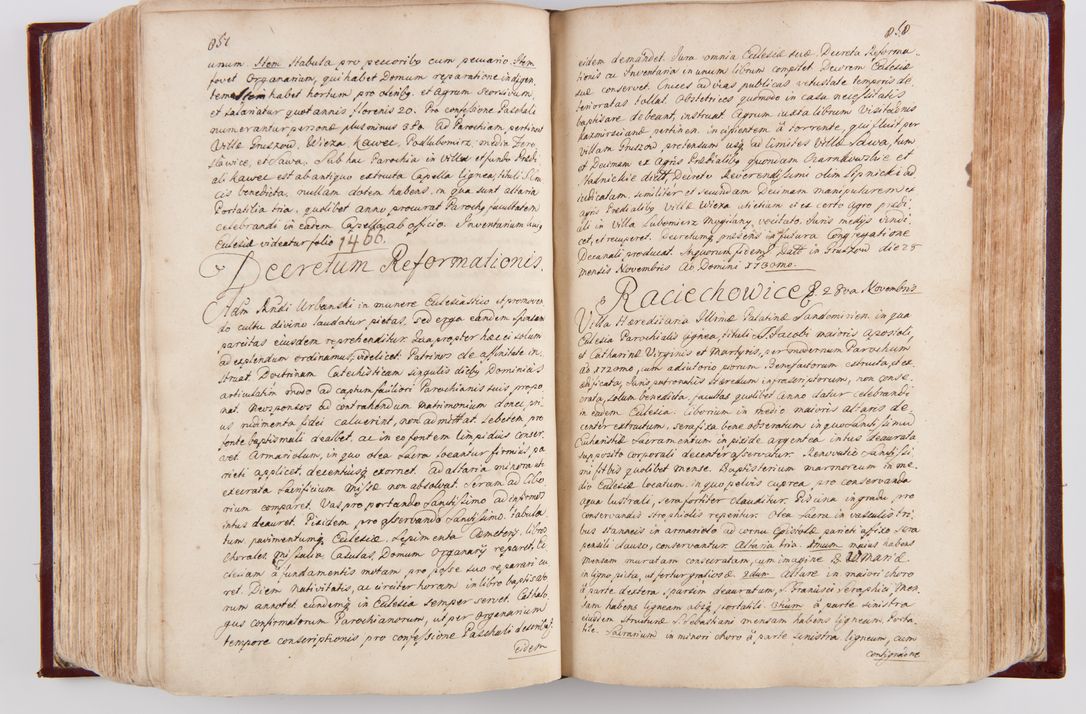 851
unum. Item stabula pro pecoribq cum pecuario. Item
fovet Organarium, qui habet Domum reparatione indigen
tem Item habet hortum pro oleribq et agrum seorsivum,
et salariatur quotannis florenis 20. Pro confessione Paschali
numerantur personae plus minus 380. Ad Parochiam, pertinet
Villae Gruszow, Wieza Kawec, Podlubomirz, medin Zere
slawice, et Sawa. Sub hac Parochia in villa et fundo Praedi
ali Kawec est ab antiquo extructa Capella lignea, tituli S. Cru
cis benedicta, nullam dotem habens, in qua sunt altaria
Portatilia tria, quolibet anno procurat Parochq facultatem
celebrandi in eadem Capella, ab officio. Inventarium huiq
Ecclesiae videatur folio 1460.
Decretum Reformationis.
Adm. Rndi Urbanski in munere Ecclesiastico et promoven
do cultu divino laudatur pietas, sed erga eandem Sponsam
parcitas eiusdem reprehenditur. Quapropter haec ei solum
ad explendum ordinamus, videlicet. Patrinos de affinitate in
struat. Doctrinam Catechisticam singulis diebq Dominicis
articulatim modo ad captum faciliori Parochianis suis propo
nat. Neosponsos ad contrahendum matrimonium donec pri
us rudimenta fidei calverint, non admittat. Lebetem pro
fonte baptismali dealbet, ac in eo fontem limpidius conser
vet. Armariolum, in quo olea sacra locantur firmiq pa
rieti applicet, decentiusq exornet. Ad altaria minora ut
execrata sacrificium missae non absolvat. Seram ad cibo
rium comparet. Vas pro portando Sanctissimo ad infirmos
intus deauret. Pixidem pro asservando Sanctissimo, tabula
tum, pavimentumq Ecclesiae, sepimenta Caemeterij, libros
Chorales, missalia, Casulas, Domum Organarij reparet. Ec
clesiam à fundamentis motam pro posse suo reparari cu
ret. Diem nativitatis, ac circiter horam in libro baptizato
rum annotet eundemq in Ecclesia semper servet. Cathalo
gus confirmatorum Parochianorum, ut per Organarium
tempore conscriptionis pro confessione Paschali describatq
eidem
852
eidem demandet. Iura omnia Ecclesiae suae Decreta Reforma
tionis ac Inventaria in unum librum compilet Decorem Ecclesiae
suae conservet. Cruces ad vias publicas vetustate temporis de
terioratas tollat. Obstetrices quomodo in casu necessitatis
baptisare debeant, instruat. Agrum iuxta librum Visitationis
Kazmirscianae pertinen. incipientem à torrente, qui fluit per
villam Gruszow, protensum usq ad limites Villae Sawa, tum
et Decimam ex Agris Praedialibq quoniam Czarnkowskie et
Stadnickie dictis, Decreto Reverendissimi olim Lipnicki ad
iudicatam, similiter et secundam Decimam manipularem ex
agris Praedialibq Villae Wieza ut etiam et ex certo agro praedi
ali in Villa Lubomierz Mygilany, vocitato, Iuris medijs vindi
cet, et recuperet. Decretumq praesens in futura Congregatione
Decanali producat. In quorum fidem q Datt in Gruszow die 25
mensis Novembris An. Domini 1730mo.
Raciechowice 28va Novembris
Villa Haereditaria Illrmae Palatinae Sandomirien. in qua
Ecclesia Parochialis lignea, tituli S. Iacobi maioris Apostoli,
et Catharinae Virginis et Martyris, per modernum Parochum
an. 1720mo, cum adiutorio piorum Benefactorum extructa, et ex
aedificata, Iuris patronatus Haeredum infrascriptorum, non conse
crata, solum benedicta, facultas quolibet anno datur celebrandi
in eadem Ecclesia. Ciborium in medio maioris altaris de
center extructum, sera fixa bene obseratum in quo Sanctissimum
Eucharistiae Sacramentum in pixide argentea intus deaurata
supposito corporali decenter asservatur. Renovatio Sanctissi
mi fit bis quolibet mense. Baptisterium marmoreum in me
dio Ecclesiae locatum, in quo pelvis cuprea pro conservanda
aqua lustrali, sera fortiter clauditur. Piscina in gradu pro
conservandis strophiolis reperitur. Olea Sacra in vasculis tri
bus stanneis in armariolo ad cornu Epistolae parieti affixo sera
pensili clauso, conservantur. Altaria tria. 1mum maius habens
mensam muratam consecratam, cum imagine B. V. Mariae
in ligno, picta, ut fertur gratiosae. 2dum. Altare in maiori choro
à parte dextera, partim deauratum, S. Francisci Seraphici, men
sam habens ligneam absq portatili. 3tium à parte sinistra
eiusdem structurae S. Sebastiani mensam habens ligneam, Porta
tile. Sacrarium in minori choro à parte sinistra ligneum, cum
consignatione